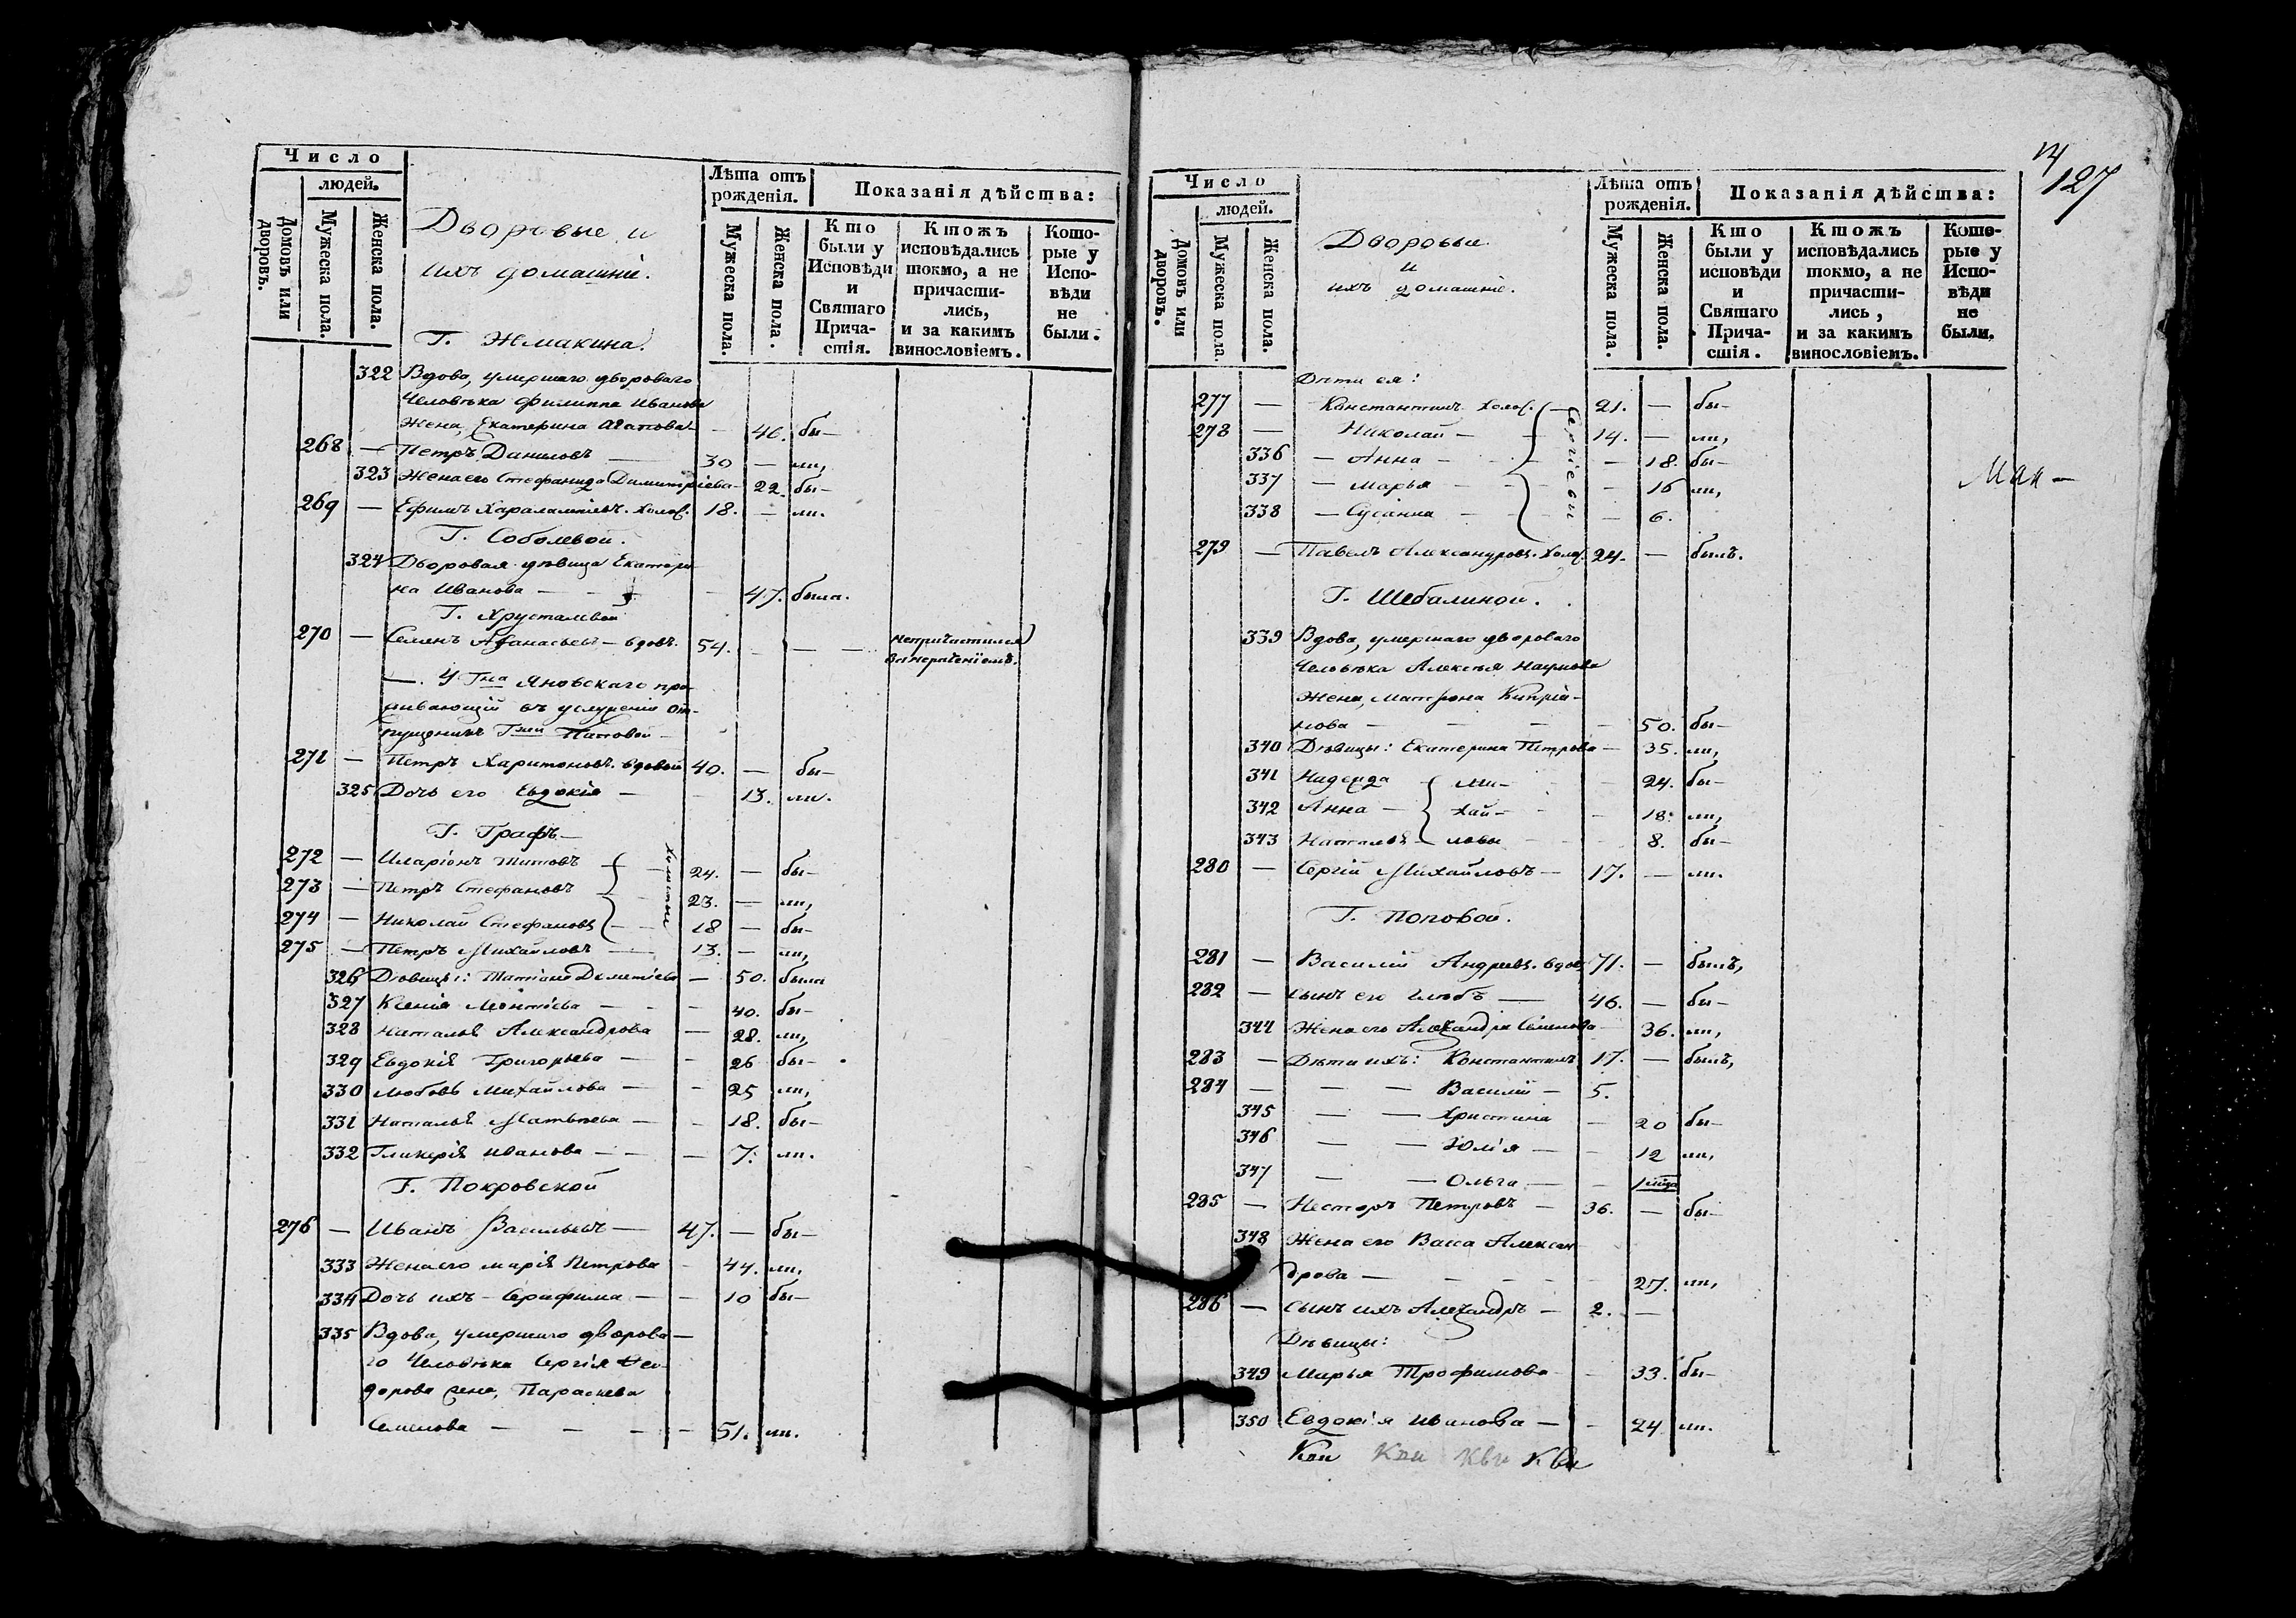 Число
людей.
Домовъ или дворовъ.
Мужеска пола.
Женска пола.
Дворовые и
ихъ домашніе.
Лѣта отъ рожденія.
Мужеска пола.
Женска пола.
Показанія дѣйства:
Кто были у Исповѣди и Святаго Прича-стія.
Ктожъ исповѣдались токмо, а не причасти-лись, и за какимъ винословіемъ.
Кото-рые у Испо-вѣди не были.
Г. Жмакина.
322 Вдова, умершаго двороваго
Человѣка Филиппа Иванова
Жена, Екатерина Агапова — 46. бы—
268 — Петръ Даниловъ — 30 — ли,
323 Жена его Стефанида Димитріева — 22. бы—
269 — Ефимъ Харалампіевъ. холос. 18. — ли.
Г. Соболевой.
324 Дворовая дѣвица Екатери-
на Иванова — — 47. была.
Г. Хрусталевой
270 — Семенъ Афанасьевъ — вдовъ. 54. — — непричастился
занераченіемъ.
— У Гна Яновскаго про-
живающій въ услуженіи От-
пущенникъ Гжи Поповой —
271 — Петръ Харитоновъ. вдовый 40. — бы—
325 Дочь его Евдокія — — 13. ли.
Г. Графъ—
272 — Иларіонъ Титовъ — 24. — бы—
273 — Петръ Стефановъ 23. — ли,
274 — Николай Стефановъ — 18 — бы—
холостые
275 — Петръ Михайловъ — 13. — ли,
326 Дѣвицы: Татіана Дементіева — 50. была
327 Ксенія Леонтіева — — 40. бы—
328 Наталья Александрова — 28. ли,
329 Евдокія Григорьева — — 26 бы—
330 Любовь Михайлова — — 25 ли,
331 Наталья Матвѣева — — 18. бы—
332 Гликерія Иванова — — 7. ли.
Г. Покровской
276 — Иванъ Васильевъ — 47. — бы—
333 Жена его Марія Петрова — 44. ли,
334 Дочь ихъ — Серафима — — 10 бы—
335 Вдова, умершаго дворова—
го Человѣка Сергія Ѳео-
дорова жена, Параскева
Семенова — — — 51. ли.
127
Число
людей.
Домовъ или дворовъ.
Мужеска пола.
Женска пола.
Дворовые
и
ихъ домашніе.
Лѣта отъ рожденія.
Мужеска пола.
Женска пола.
Показанія дѣйства:
Кто были у исповѣди и Святаго Прича-стія.
Ктожъ исповѣдались токмо, а не причасти-лись, и за какимъ винословіемъ.
Кото-рые у Испо-вѣди не были.
Дѣти ея:
277 — Константинъ холос. — 21. — бы—
278 — Николай — — 14. — ли,
336 — Анна — — — 18. бы—
337 — Марья — — — 16 ли,
338 — Сусанна — — — 6.
Сергіевы
279 — Павелъ Александровъ. холос. 24. — былъ.
Г. Шебалиной.
339 Вдова, умершаго двороваго
Человѣка Алексѣя Наумова
Жена, Матрона Кипрія-
нова — — — — 50. бы—
340 Дѣвицы: Екатерина Петрова — 35. ли,
341 Надежда Ми— — 24. бы—
342 Анна — хай— — 18. ли,
343 Наталья — ловы — 8. бы—
280 — Сергій Михайловъ — 17. — ли.
Г. Поповой.
281 — Василій Андреевъ. вдов. 71. — былъ,
282 — Сынъ его Глѣбъ — 46. — бы—
344 Жена его Александра Семенова — 36. ли,
283 — Дѣти ихъ: Константинъ 17. — былъ,
284 — — — Василій — 5.
345 — — Христина — 20 бы—
346 — — Юлія — — 12 ли,
347 — — Ольга — —
285 — Несторъ Петровъ — 36. — бы—
348 Жена его Васса Алексан
дрова — — — — 27. ли,
286 — Сынъ ихъ Александръ — 2. —
Дѣвицы:
349 Марья Трофимова — 33. бы—
350 Евдокія Иванова — — 24 ли.